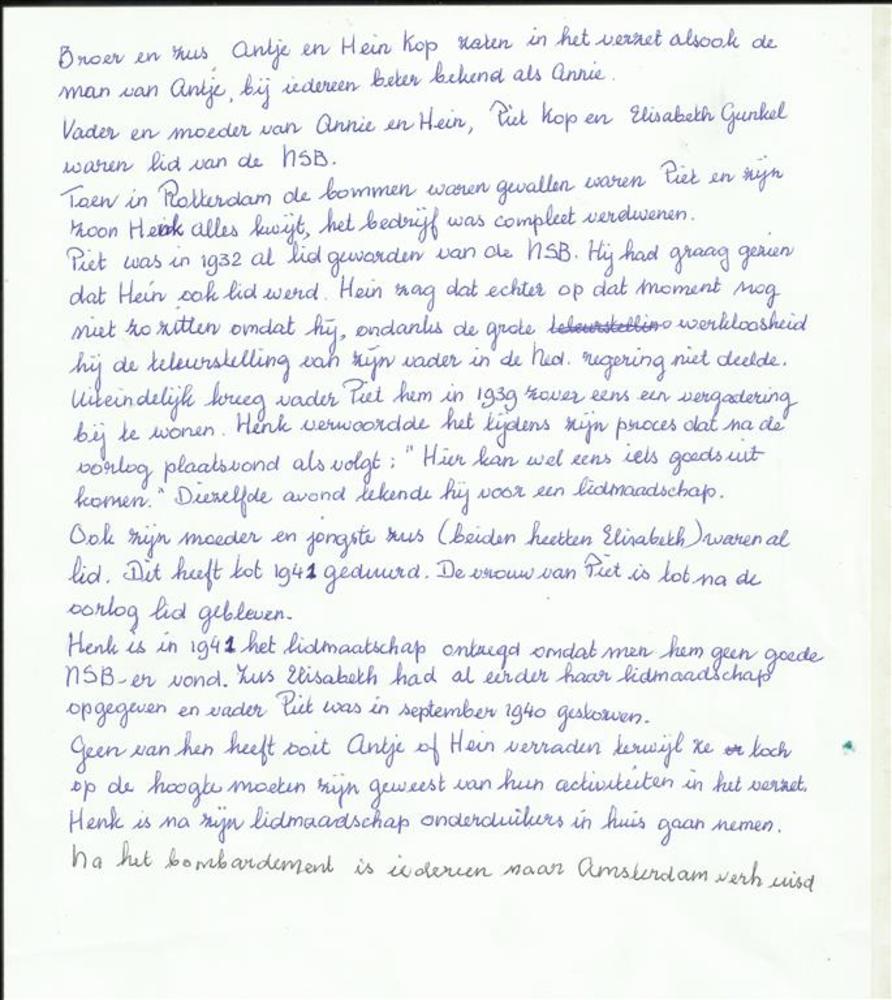 Broer en zus, Antje en Hein Kop zaten in het verzet alsook de
man van Antje, bij iedereen beter bekend als Annie.
Vader en moeder van Annie en Hein, Piet Kop en Elisabeth Gunkel
waren lid van de NSB.
Toen in Rotterdam de bommen waren gevallen waren Piet en zijn
zoon Henk alles kwijt, het bedrijf was compleet verdwenen.
Piet was in 1932 al lid geworden van de NSB. Hij had graag gezien
dat Hein ook lid werd. Hein zag dat echter op dat moment nog
niet zo zitten omdat hij, ondanks de grote teleurstelling werkloosheid
hij de teleurstelling van zijn vader in de Ned. regering niet deelde.
Uiteindelijk kreeg vader Piet hem in 1939 zover eens een vergadering
bij te wonen. Henk verwoordde het tijdens zijn proces dat na de
oorlog plaatsvond als volgt: "Hier kan wel eens iets goeds uit
komen." Diezelfde avond tekende hij voor een lidmaadschap.
Ook zijn moeder en jongste zus (beiden heetten Elisabeth) waren al
lid. Dit heeft tot 1941 geduurd. De vrouw van Piet is tot na de
oorlog lid gebleven.
Henk is in 1941 het lidmaatschap ontzegd omdat men hem geen goede
NSB-er vond. Zus Elisabeth had al eerder haar lidmaadschap
opgegeven en vader Piet was in september 1940 gestorven.
Geen van hen heeft ooit Antje of Hein verraden terwijl ze toch
op de hoogte moeten zijn geweest van hun activiteiten in het verzet.
Henk is na zijn lidmaadschap onderduikers in huis gaan nemen.
Na het bombardement is iedereen naar Amsterdam verhuisd